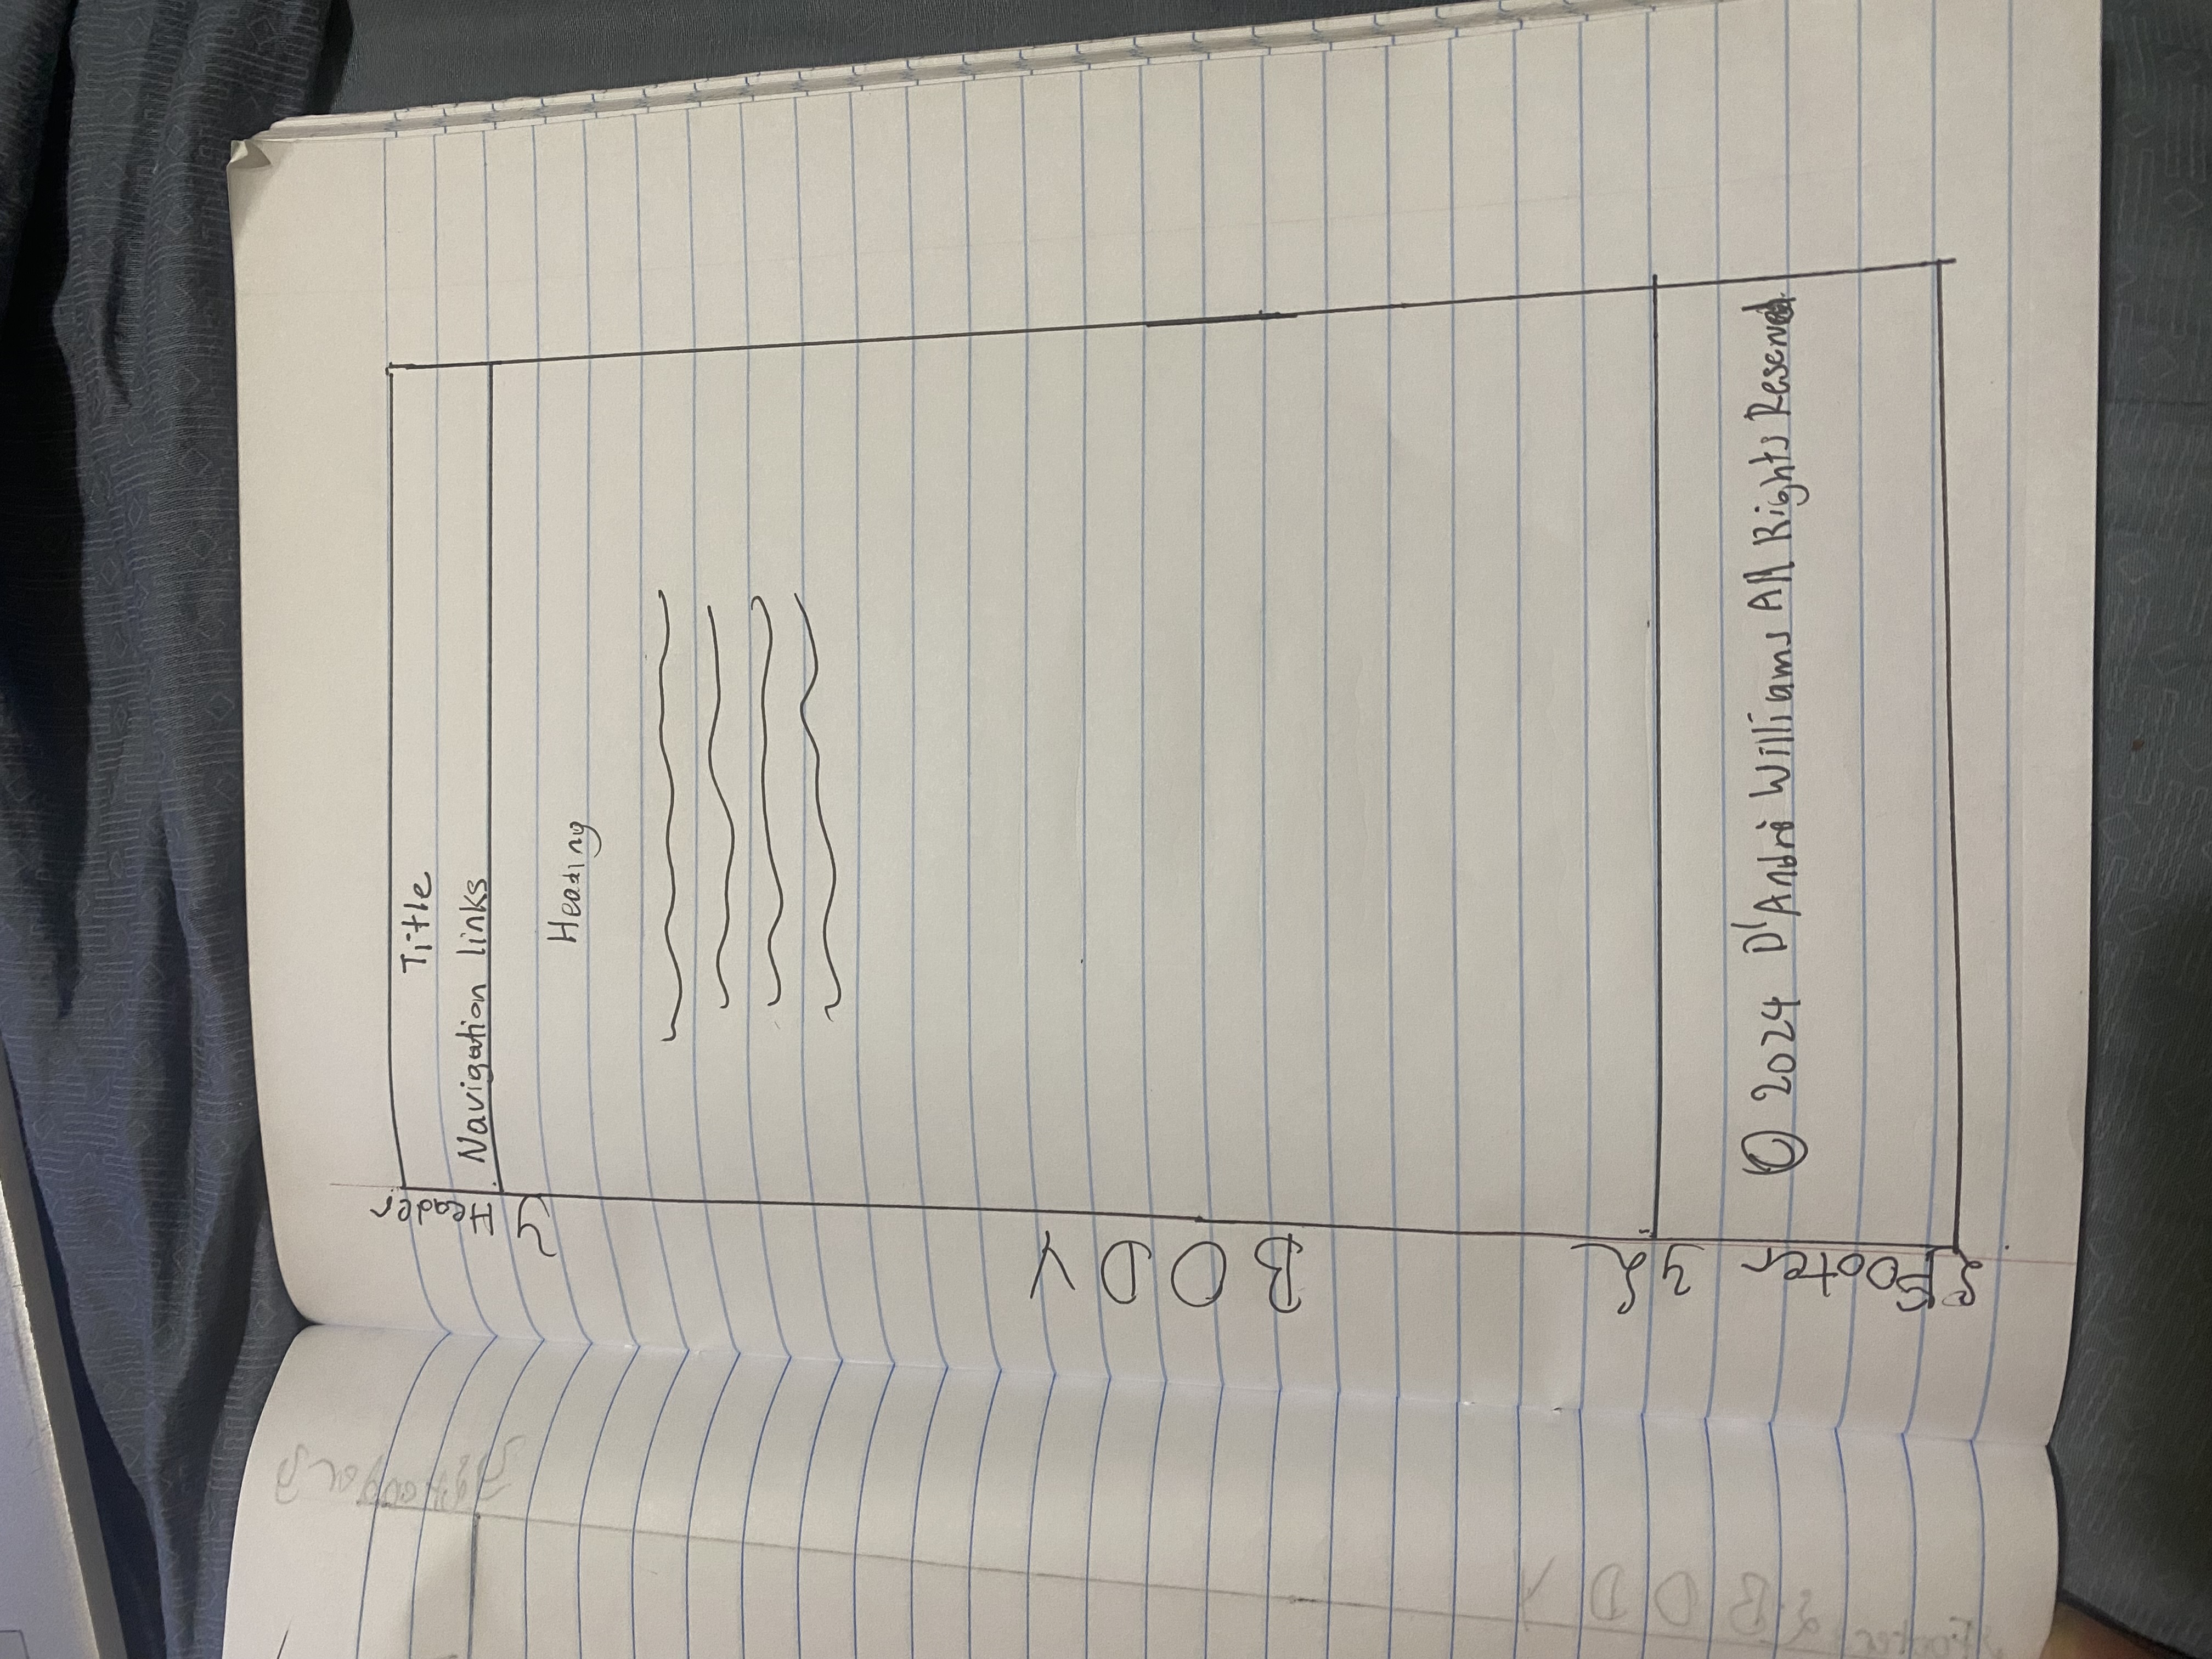 Header
Title
Navigation links
Heading
BODY
Footer
© 2024 D'André Williams All Rights Reserved